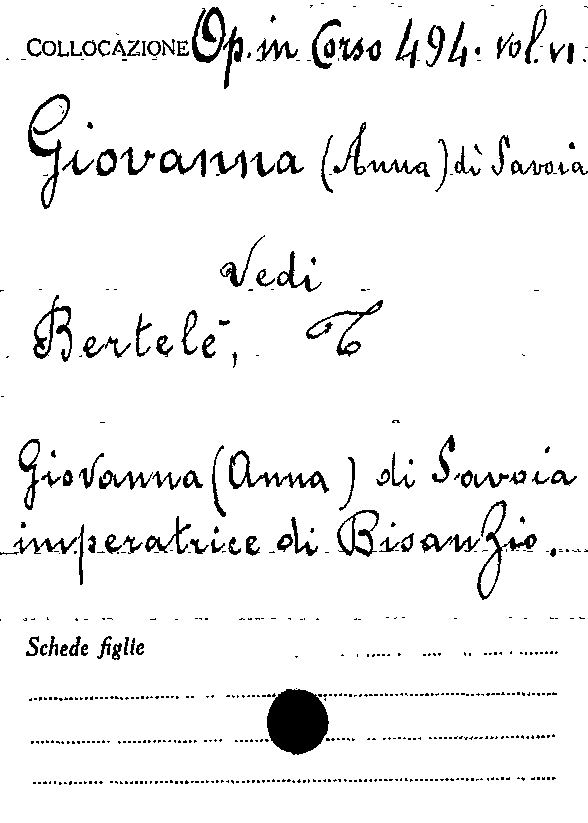 COLLOCAZIONE Op. in Corso 494. vol. VI.
Giovanna (Anna) di Savoia
Vedi
Bertelè, T
Giovanna (Anna) di Savoia
imperatrice di Bisanzio.
Schede figlie